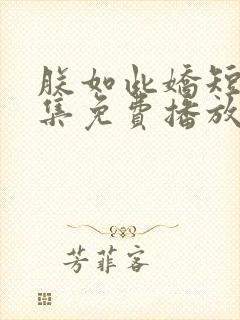 朕如此嬌短
集免費播放
芳菲客